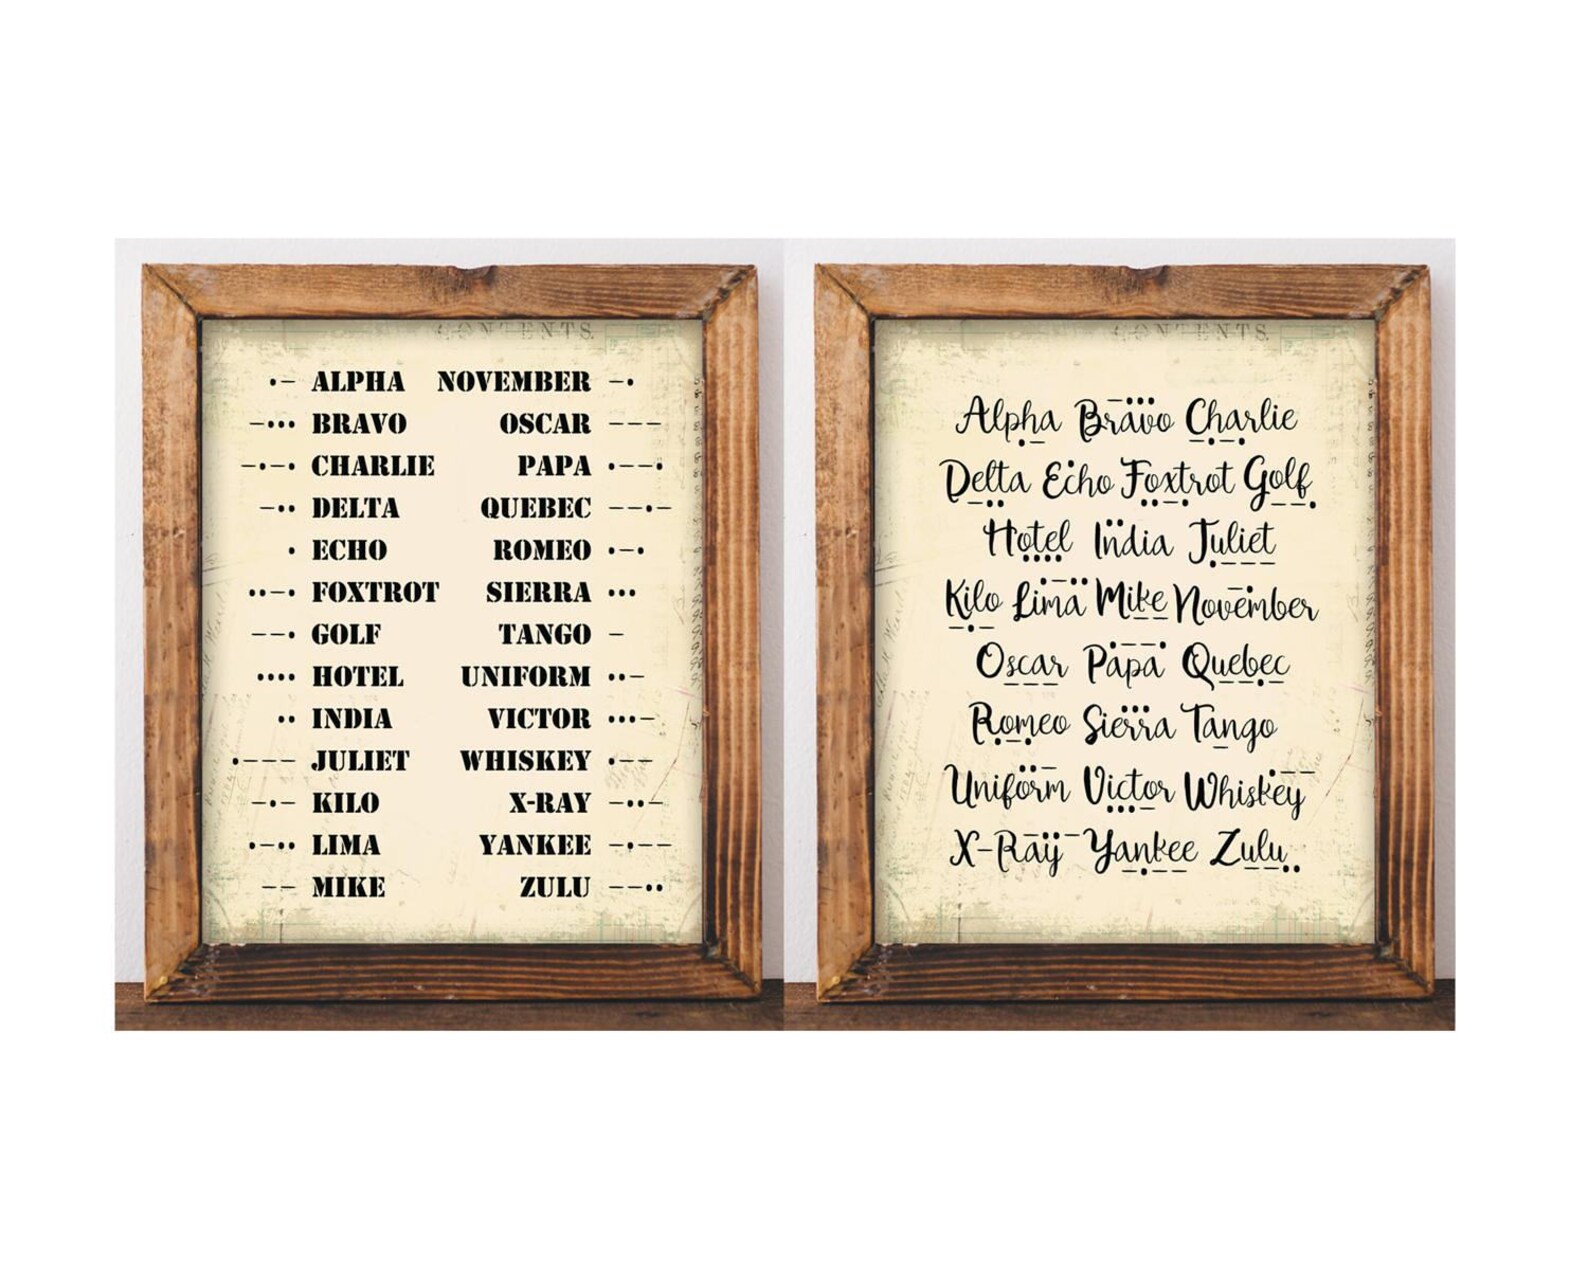 CONTENTS.
•– ALPHA NOVEMBER –•
–••• BRAVO OSCAR –––
–•–• CHARLIE PAPA •––•
–•• DELTA QUEBEC ––•–
• ECHO ROMEO •–•
••–• FOXTROT SIERRA •••
––• GOLF TANGO –
•••• HOTEL UNIFORM ••–
•• INDIA VICTOR •••–
•––– JULIET WHISKEY •––
–•– KILO X-RAY –••–
•–•• LIMA YANKEE –•––
–– MIKE ZULU ––••
CONTENTS.
Alpha Bravo Charlie
Delta Echo Foxtrot Golf
Hotel India Juliet
Kilo Lima Mike November
Oscar Papa Quebec
Romeo Sierra Tango
Uniform Victor Whiskey
X-Ray Yankee Zulu